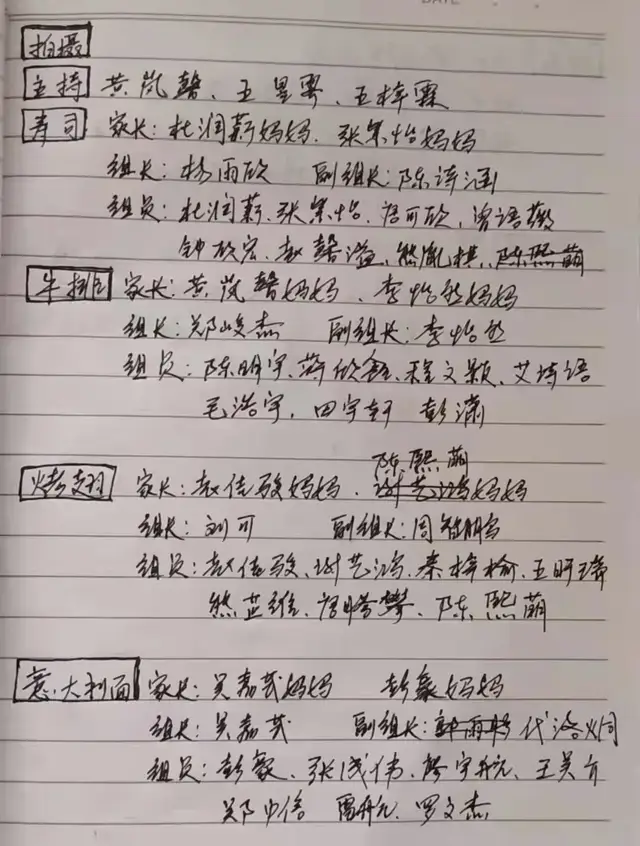 DATE
拍摄
主持 黄岚馨、王星雯、王梓霖
寿司 家长:杜润薪妈妈、张集怡妈妈
组长:杨雨欣 副组长:陈译涵
组员:杜润薪、张集怡、语可欣、曾语薇
钟欣宏、赵馨溢、熊胤棋、陈熙萌
牛排 家长:黄岚馨妈妈、李怡然妈妈
组长:郑峻杰 副组长:李怡然
组员:陈明宇、蒋欣鑫、程文颖、艾琦语
毛浩宇、田宇轩 彭潇
陈熙萌
烤翅 家长:赵佳骏妈妈、谢艺鸿妈妈
组长:刘可 副组长:周智鹏
组员:赵佳骏、谢艺鸿、秦梓榆、王明
熊芷维、陈熙萌
意大利面 家长:吴嘉芪妈妈 彭豪妈妈
组长:吴嘉芪 副组长:代洛
组员:彭豪、张成伟、宇航、王昊
郑中信 雷航 罗文杰